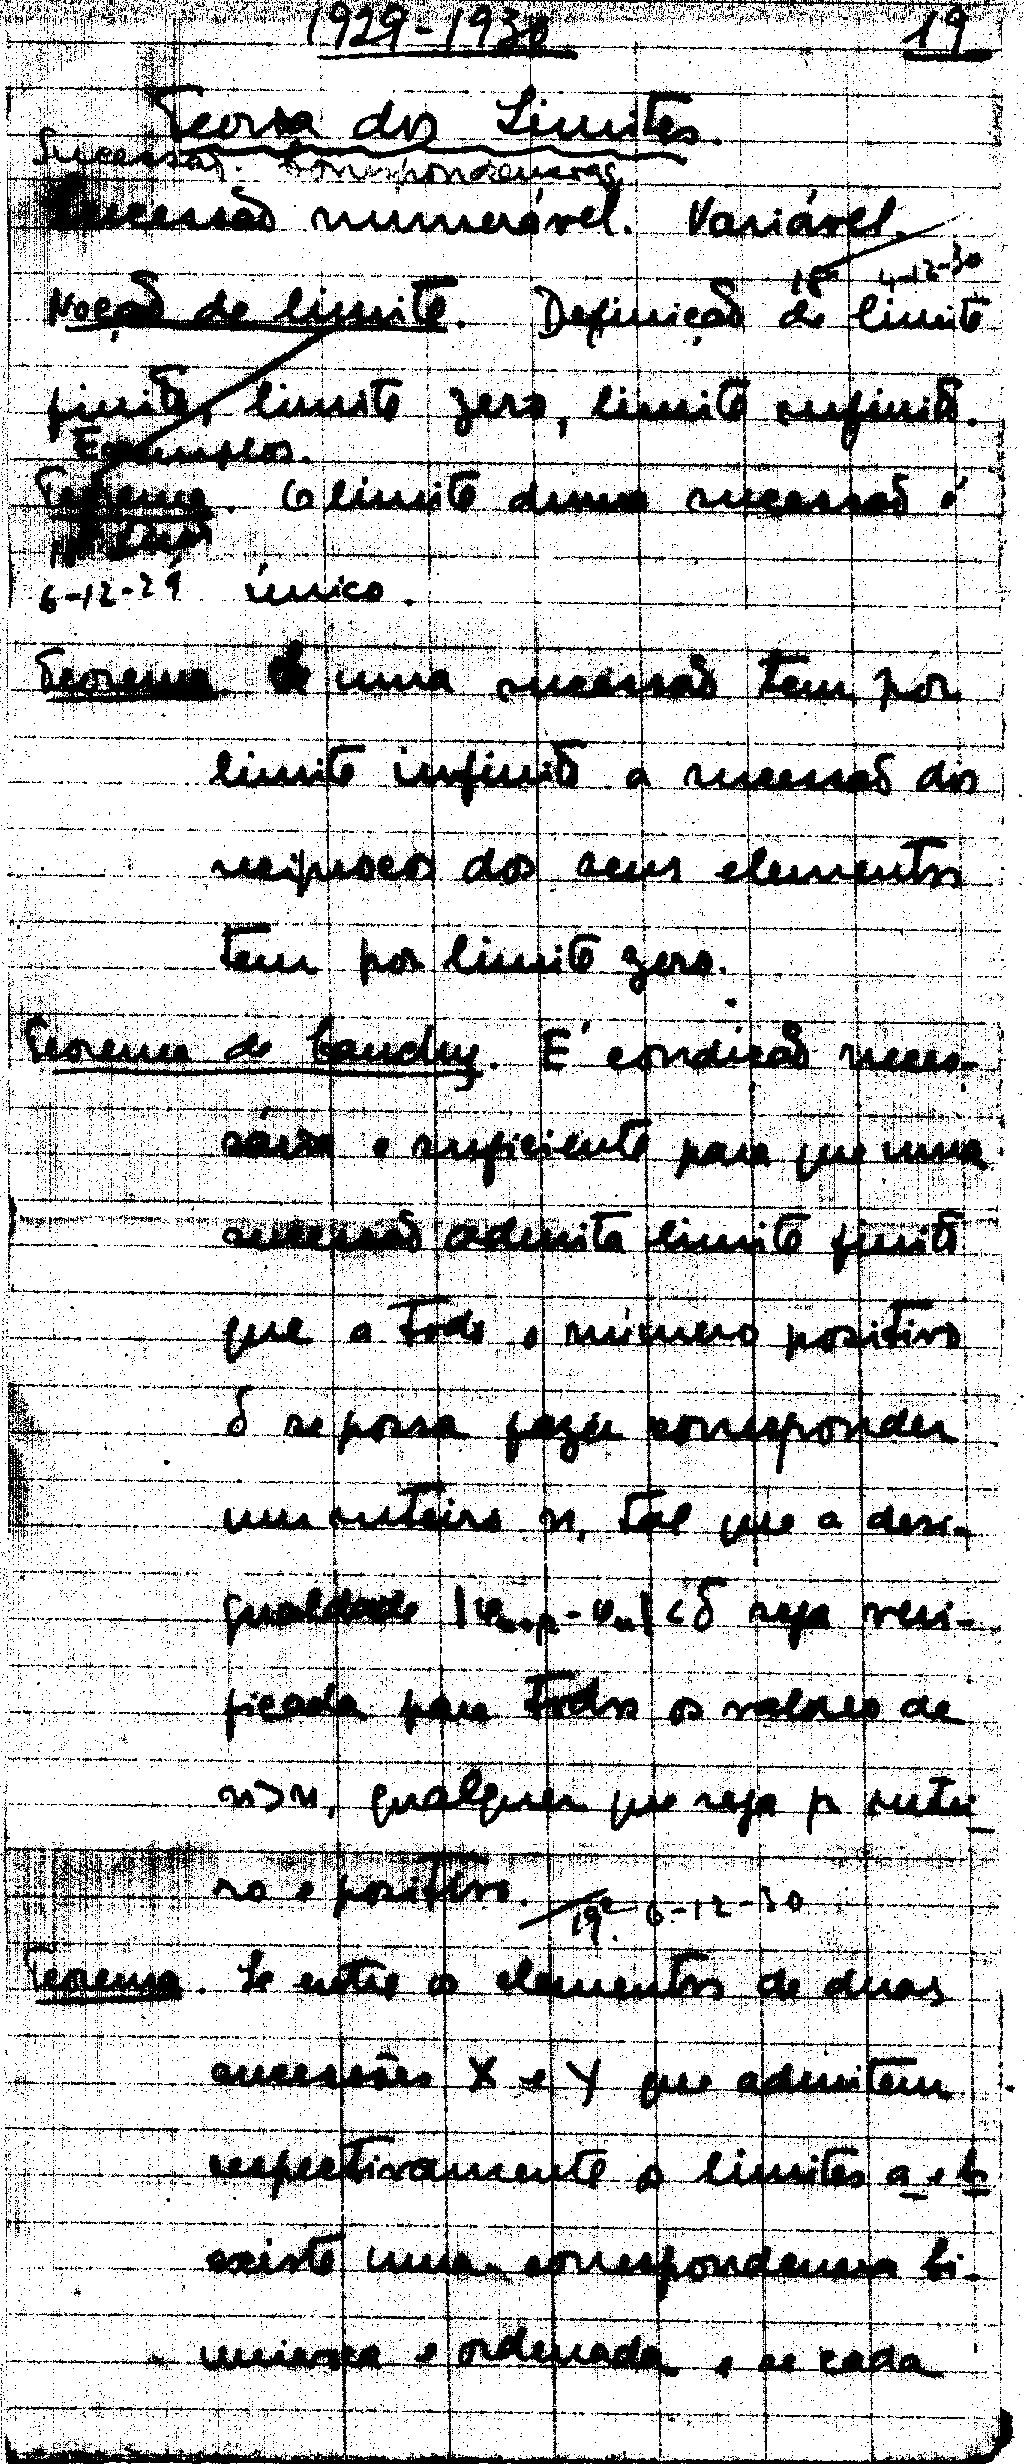 1929-1930 19
Teoria dos Limites.
Sucessão. Correspondencias
Sucessão numerável. Variável.
18ª 4-12-30
Noção de limite. Definição de limite
finito, limite zero, limite infinito.
Exemplos.
Teorema. O limite duma sucessão é
6-12-29 único.
Teorema. Se uma sucessão tem por
limite infinito a sucessão dos
recíprocos dos seus elementos
tem por limite zero.
Teorema de Cauchy. É condição neces-
sária e suficiente para que uma
sucessão admita limite finito
que a todo o número positivo
δ se possa fazer corresponder
um inteiro n, tal que a desi-
gualdade |φn+p - φn| < δ seja veri-
ficada para todos os valores de
n > n, qualquer que seja p intei
ro e positivo.
19ª 6-12-30
Teorema. Se entre os elementos de duas
sucessões X e Y que admitem
respectivamente os limites a e b
existe uma correspondencia bi-
univoca e ordenada, e se cada